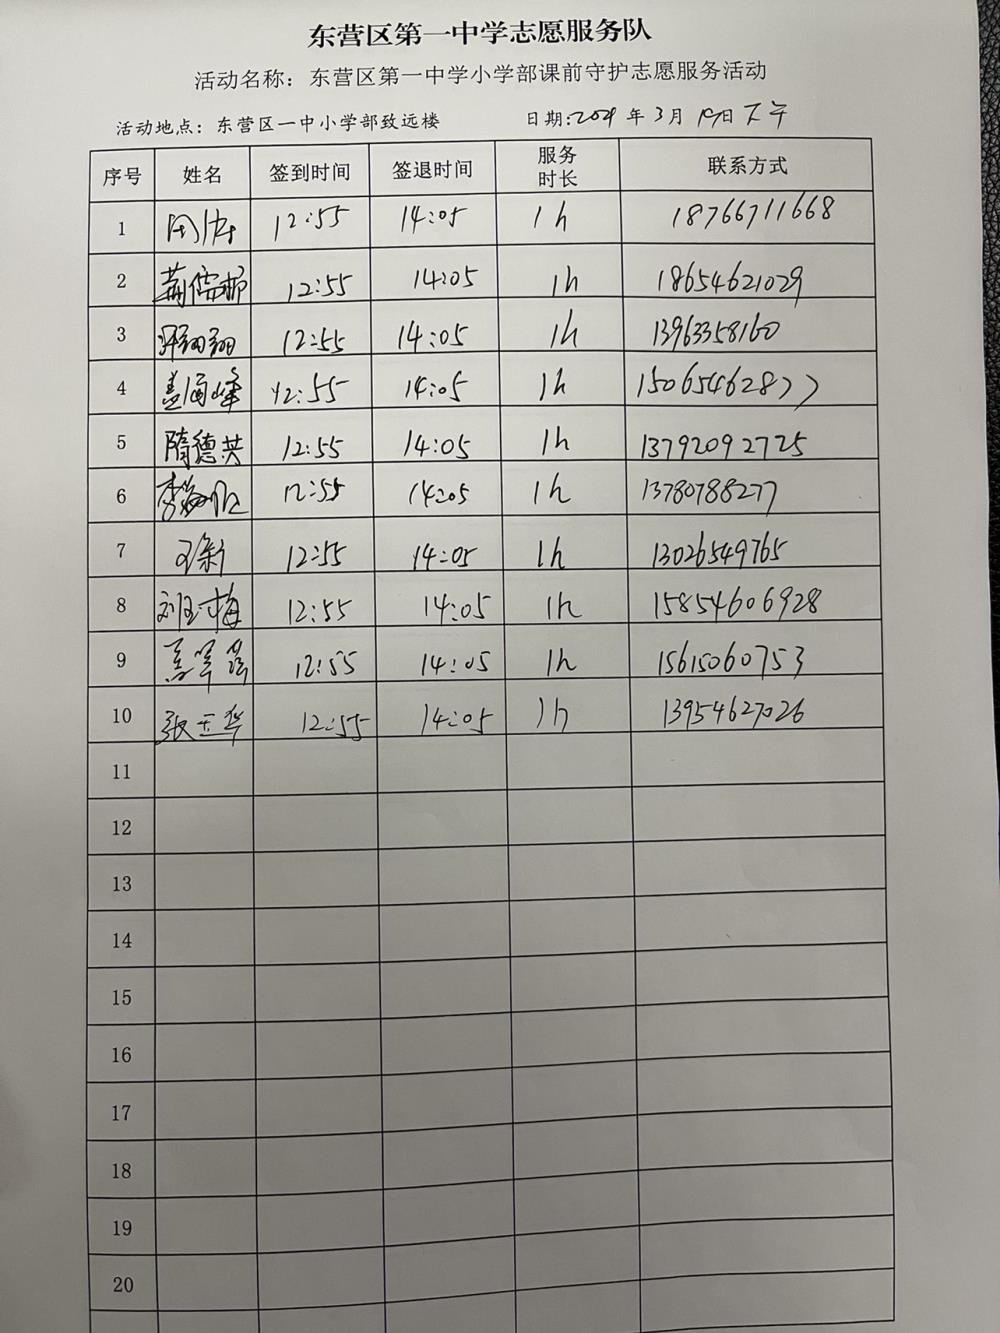 东营区第一中学志愿服务队
活动名称：东营区第一中学小学部课前守护志愿服务活动
活动地点：东营区一中小学部致远楼 日期:2024年3月19日下午
序号 姓名 签到时间 签退时间 服务时长 联系方式
1 12:55 14:05 1h 18766711668
2 12:55 14:05 1h 18654621029
3 12:55 14:05 1h 13963358160
4 12:55 14:05 1h 15065462877
5 隋德共 12:55 14:05 1h 13792092725
6 12:55 14:05 1h 13780788277
7 王新 12:55 14:05 1h 13026549765
8 刘玉梅 12:55 14:05 1h 15854606928
9 12:55 14:05 1h 15615060753
10 张玉华 12:55 14:05 1h 13954627026
11
12
13
14
15
16
17
18
19
20